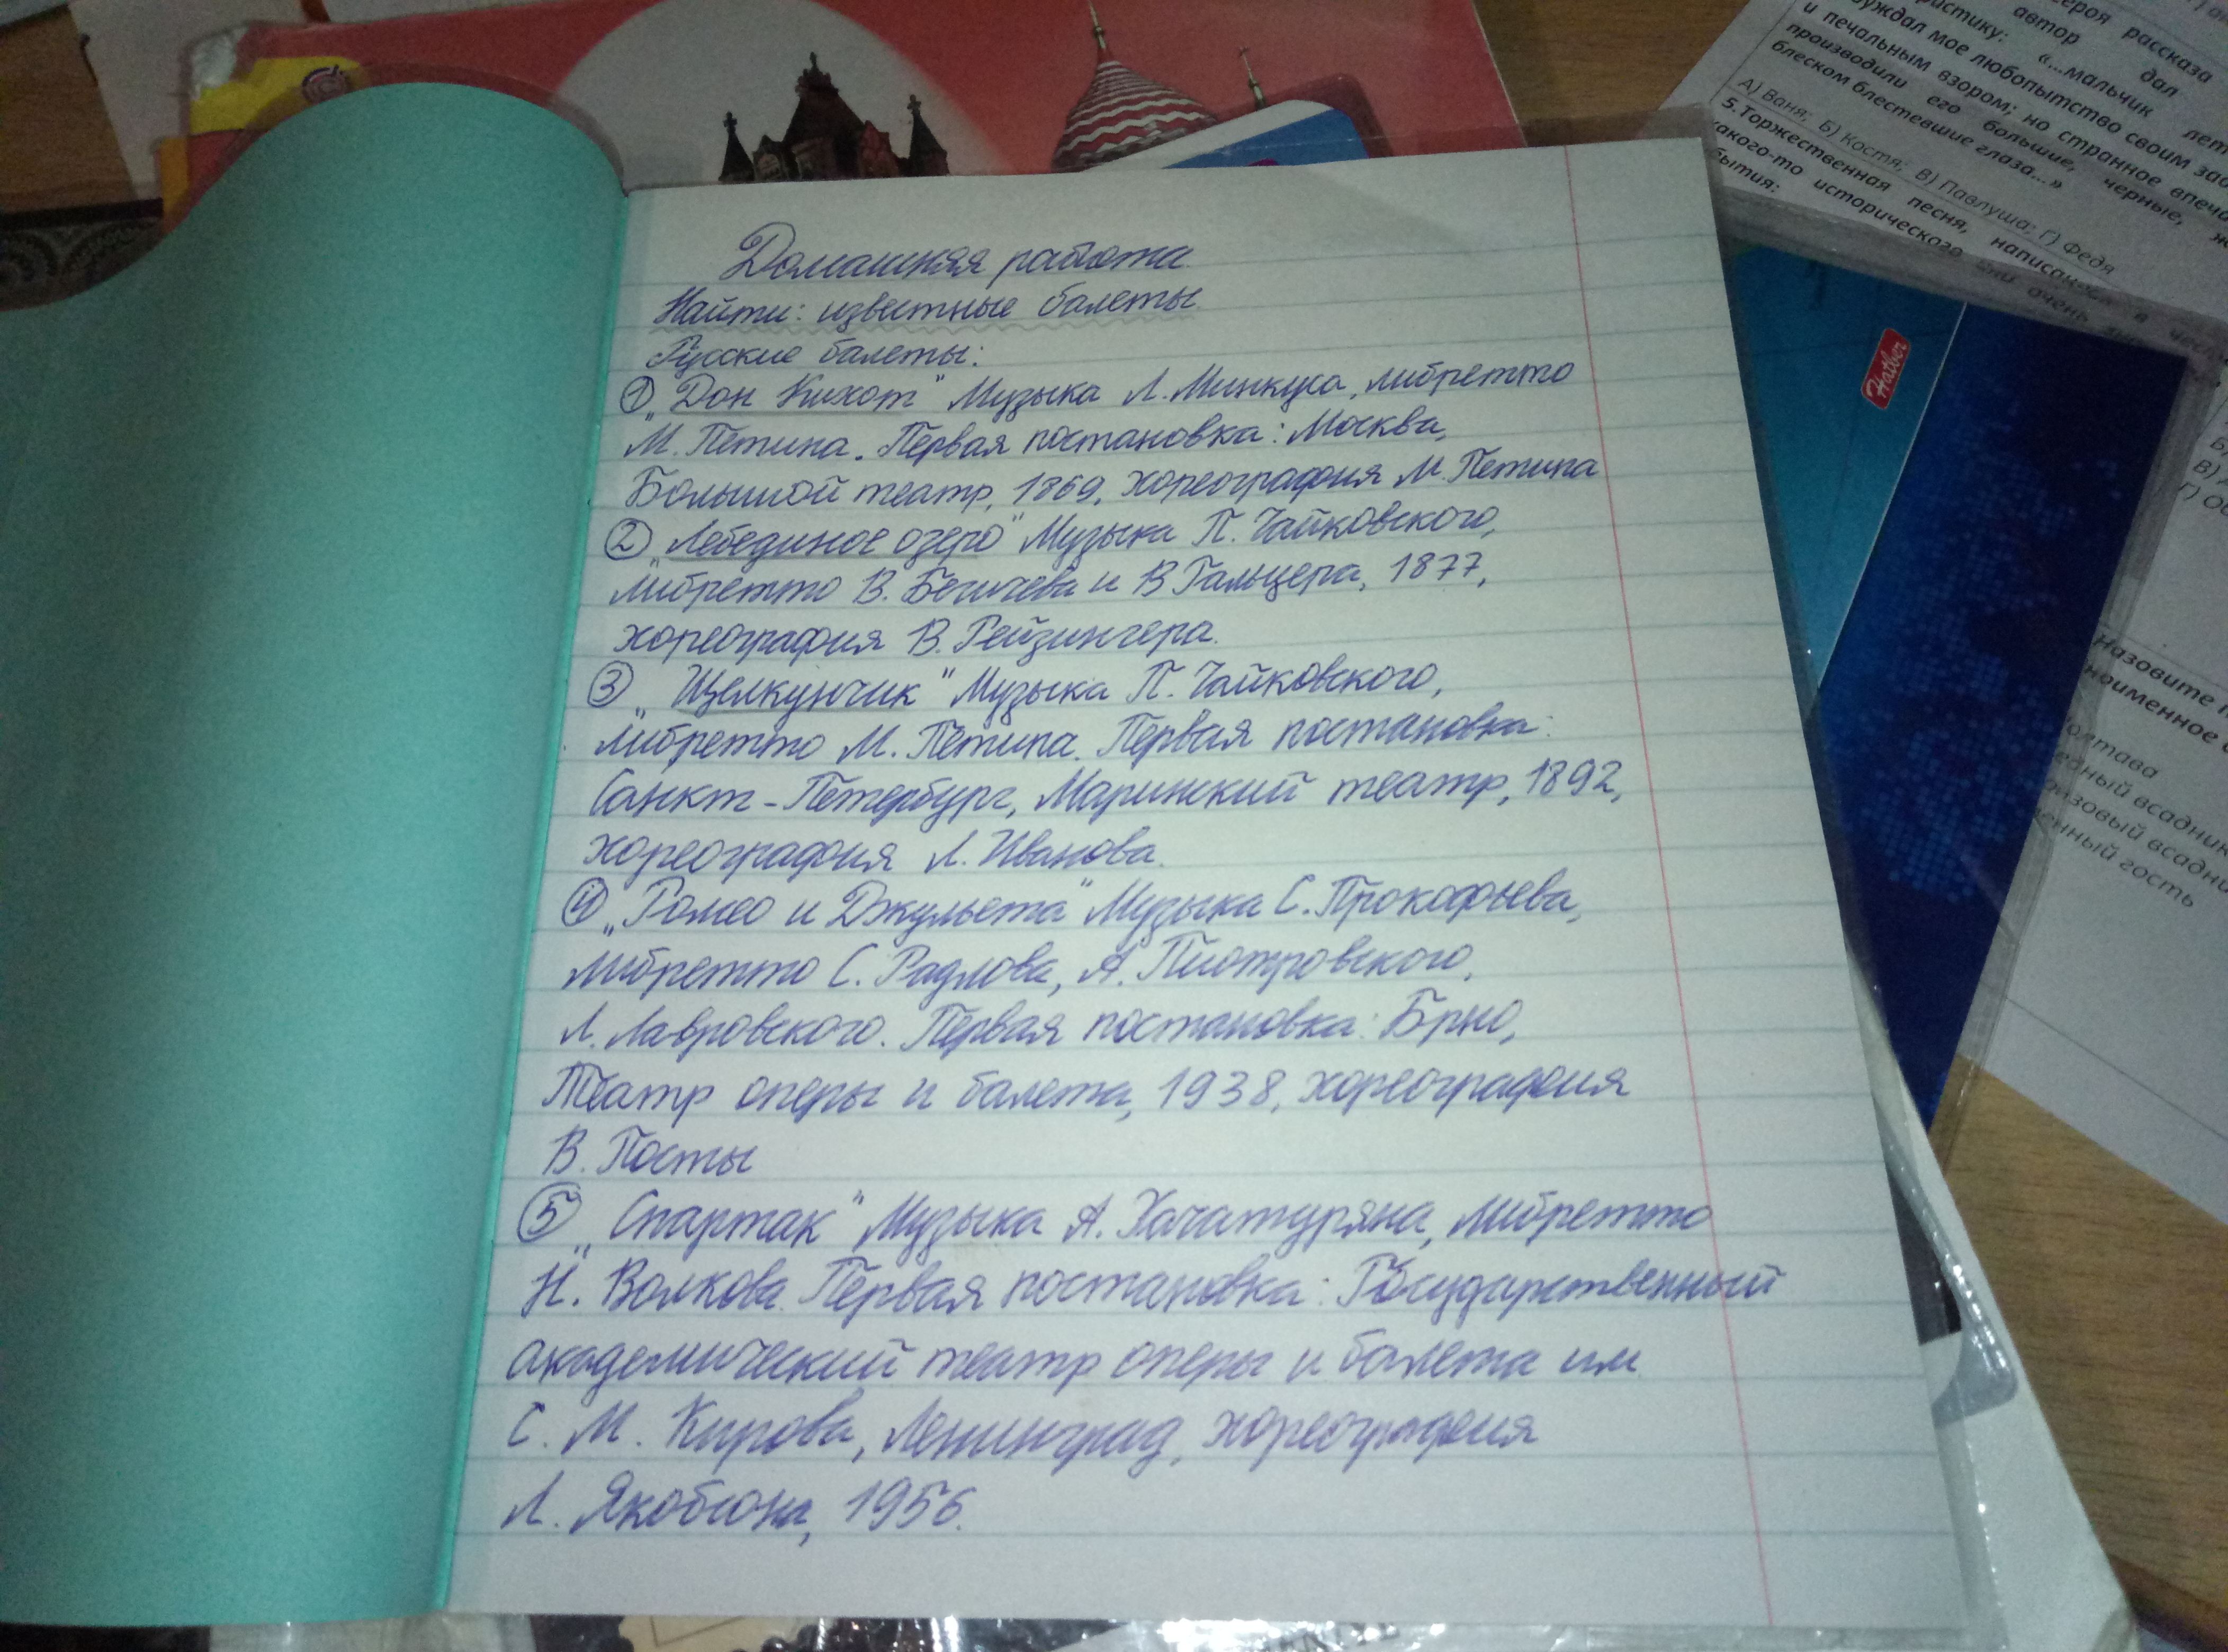 Домашняя работа
Найти: известные балеты
Русские балеты:
① „Дон Кихот" Музыка Л. Минкуса, либретто
М. Петипа. Первая постановка: Москва,
Большой театр, 1869, хореография М. Петипа
② „Лебединое озеро" Музыка П. Чайковского,
либретто В. Бегичева и В Гальцера, 1877,
хореография В. Рейзингера.
③ „Щелкунчик" Музыка П. Чайковского,
либретто М. Петипа. Первая постановка:
Санкт-Петербург, Маринский театр, 1892,
хореография Л. Иванова.
④ „Ромео и Джульета" Музыка С. Прокофьева,
либретто С. Радлова, А. Пиотровского,
Л. Лавровского. Первая постановка: Брно,
Театр оперы и балета, 1938, хореография
В. Псоты
⑤ „Спартак" Музыка А. Хачатуряна, либретто
Н. Волкова. Первая постановка: Государственный
академический театр оперы и балета им
С. М. Кирова, Ленинград, хореография
Л. Якобсона, 1956.
героя рассказа
автор дал
«...мальчик
мое любопытство своим
и печальным взором; но странное
производили его большие, черные,
блеском блестевшие глаза...»
А) Ваня; Б) Костя; В) Павлуша; Г) Федя
5. Торжественная песня,
какого-то исторического
Hatber
назовите
всадник
всадник
гость